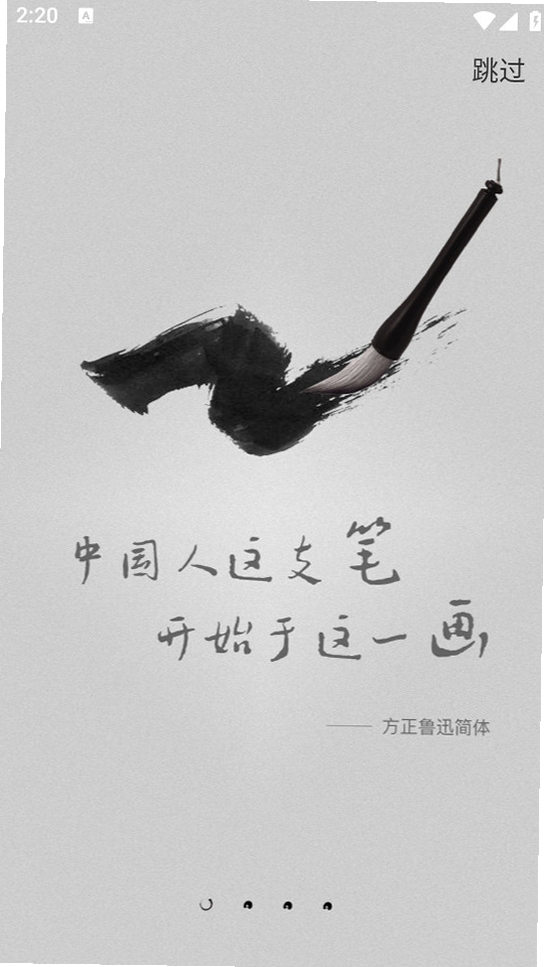 2:20 A
跳过
中国人这支笔
开始于这一画
—— 方正鲁迅简体